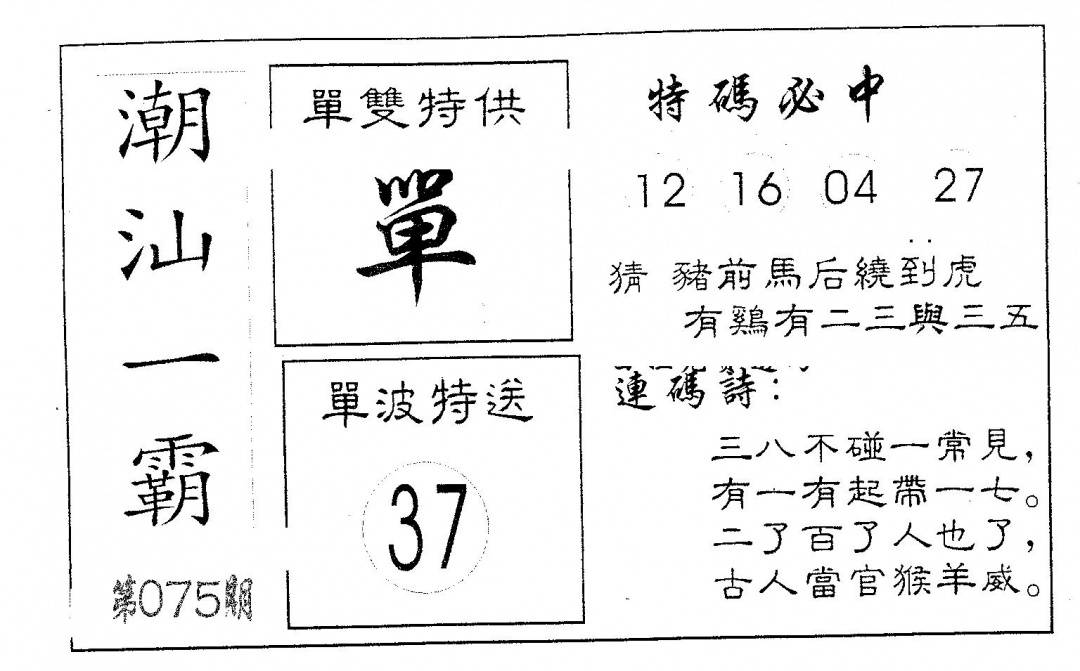 潮汕一霸
第075期
單雙特供
單
單波特送
37
特碼必中
12 16 04 27
猜 豬前馬后繞到虎
有鷄有二三與三五
連碼詩：
三八不碰一常見，
有一有起帶一七。
二了百了人也了，
古人當官猴羊威。